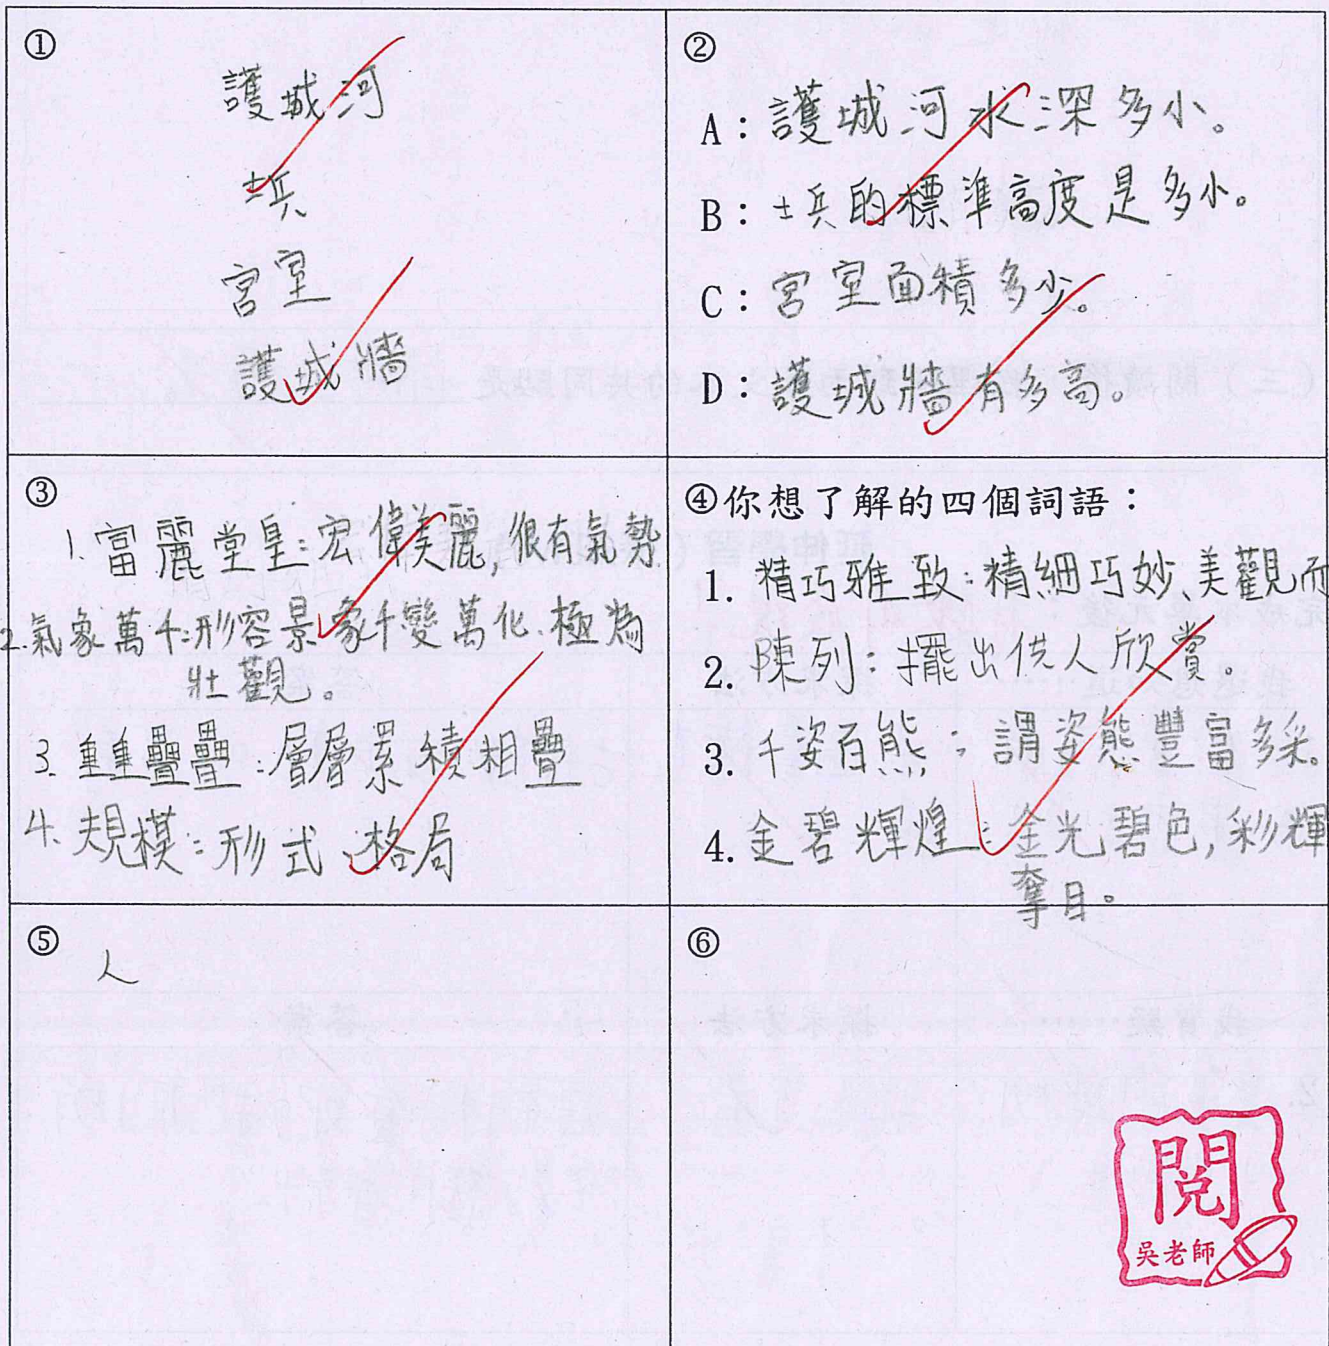 ①
護城河
士兵
宮室
護城牆
②
A：護城河水深多小。
B：士兵的標準高度是多小。
C：宮室面積多少。
D：護城牆有多高。
③
1.富麗堂皇：宏偉美麗，很有氣勢.
2.氣象萬千：形容景象千變萬化、極為
壯觀。
3.重重疊疊：層層累積相疊
4.規模：形式、格局
④你想了解的四個詞語：
1. 精巧雅致：精細巧妙、美觀而
2. 陳列：擺出供人欣賞。
3. 千姿百態：謂姿態豐富多采。
4. 金碧輝煌：金光碧色，彩輝
奪目。
⑤
人
⑥
閱
吳老師